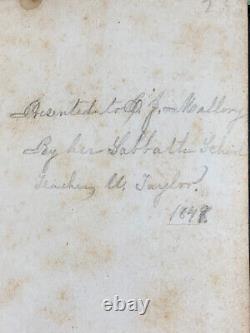 Presented to C. J. Mallory
By her Sabbath School
Teacher, M. Taylor.
1848
ebay